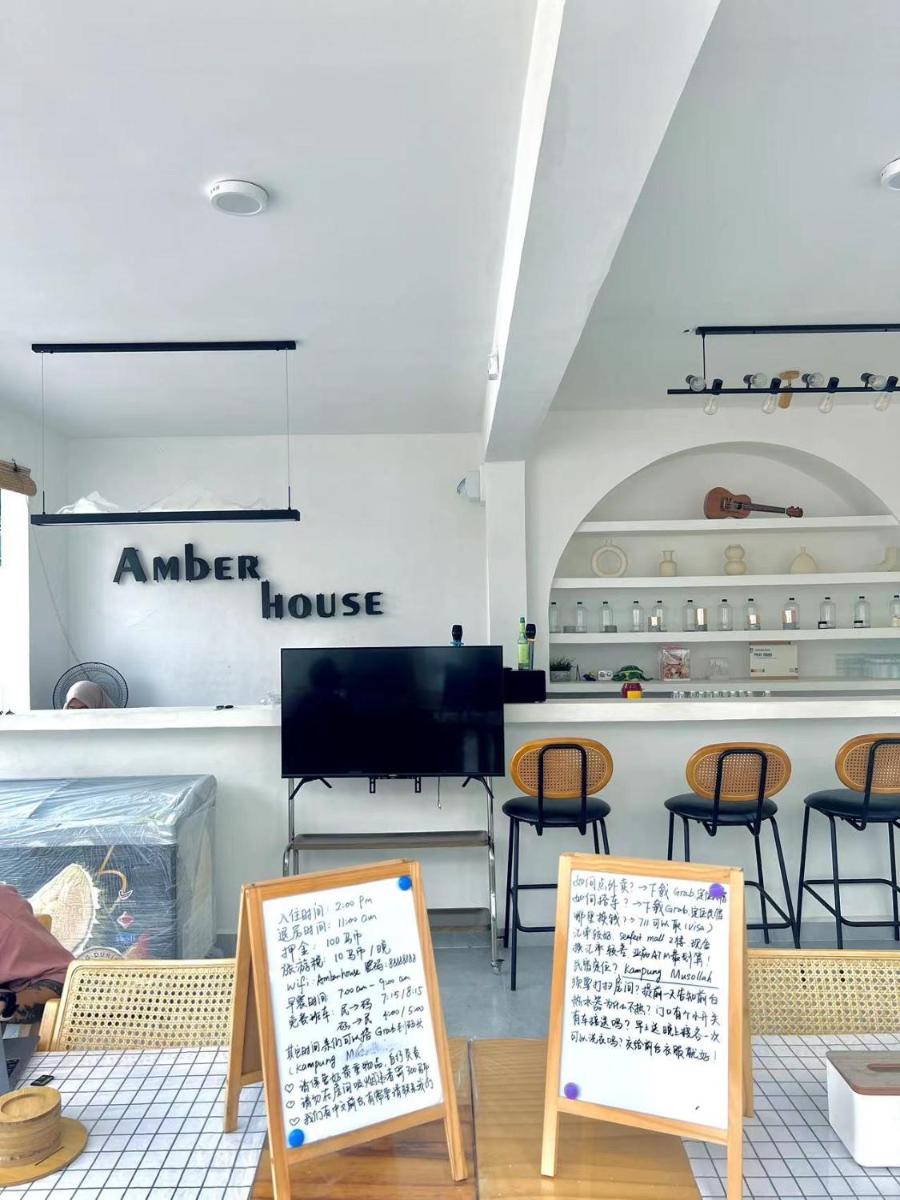 AMBER
HOUSE
入住时间: 2:00 pm
退房时间: 11:00 am
押金: 100马币
旅游税: 10马币/晚
Wifi: Amberhouse 密码: 88888888
早餐时间 7:00am - 9:00am
免费班车: 民→码 7:15/8:15
码→民 4:00/5:00
其它时间亲们可以搭Grab到码头
(Kampung
♡ 请保管好贵重物品,自行负责
♡ 请勿在房间吸烟,违者罚300马币
♡ 我们有中文前台有需要请联系我们
如何点外卖?→下载Grab
如何搭车?→下载Grab
哪里换钱?→711可以取(visa)
汇率较好 seafest mall 2楼 现金
民宿定位? Kampung Musollah
能拿打扫房间?提前一天告知前台
热水器为什么不热?门口有个小开关
有车接送吗?早上送晚上接各一次
可以洗衣吗?衣给前台衣服